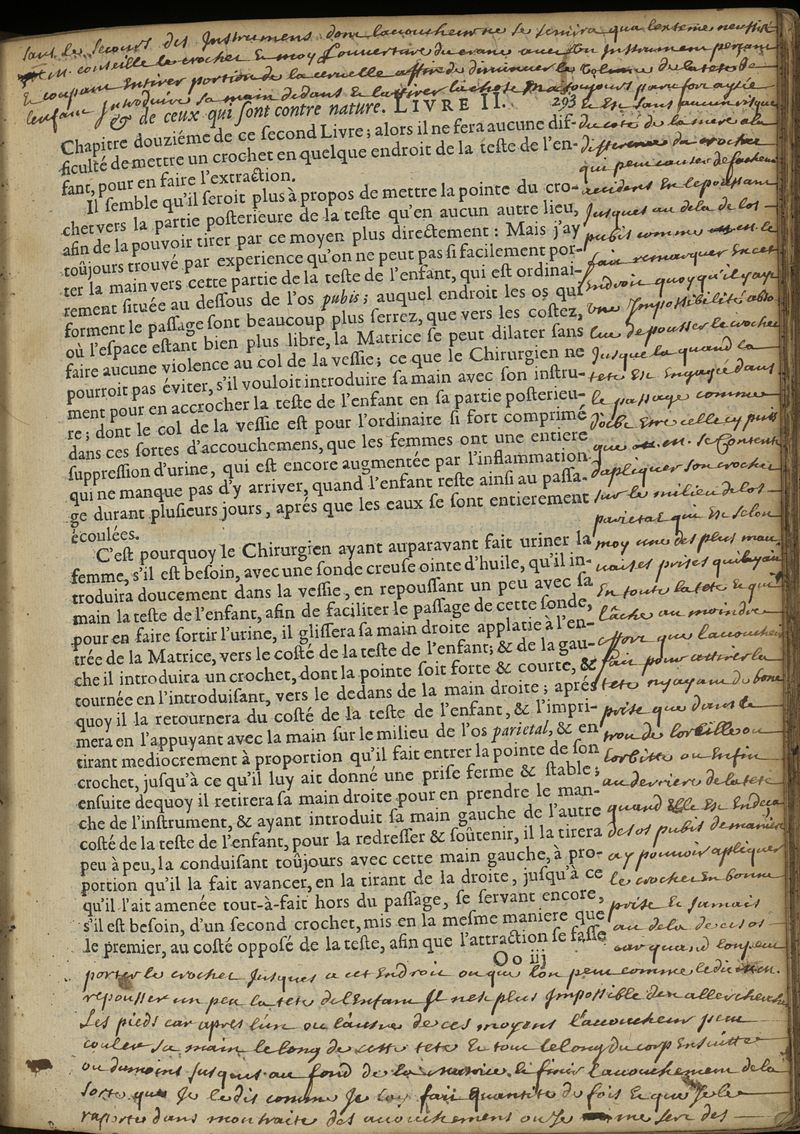 sans le secours des Instrumens dont laccoucheur ne se servira qua lexteme necessité
M. conseille le crochet & moy l'ouverture du crane avec un Instrument persant
& coupant & tirer portion de la cervelle affin de diminuer le volume de la tete de
lenfant Introduire sa main dedans & lattirer
& de ceux qui ſont contre nature. LIVRE II. 293
Chapitre douziéme de ce ſecond Livre; alors il ne fera aucune dif-
ficulté de mettre un crochet en quelque endroit de la teſte de l'en-
fant, pour en faire l'extraction.
Il ſemble qu'il ſeroit plus à propos de mettre la pointe du cro-
chet vers la partie poſterieure de la teſte qu'en aucun autre lieu,
afin de la pouvoir tirer par ce moyen plus directement: Mais j'ay
toûjours trouvé par experience qu'on ne peut pas ſi facilement por-
ter la main vers cette partie de la teſte de l'enfant, qui eſt ordinai-
rement ſituée au deſſous de l'os pubis; auquel endroit les os qui
forment le paſſage ſont beaucoup plus ſerrez, que vers les coſtez,
où l'eſpace eſtant bien plus libre, la Matrice ſe peut dilater ſans
faire aucune violence au col de la veſſie; ce que le Chirurgien ne
pourroit pas éviter, s'il vouloit introduire ſa main avec ſon inſtru-
ment pour en accrocher la teſte de l'enfant en ſa partie poſterieu-
re; dont le col de la veſſie eſt pour l'ordinaire ſi fort comprimé
dans ces ſortes d'accouchemens, que les femmes ont une entiere
ſuppreſſion d'urine, qui eſt encore augmentée par l'inflammation
qui ne manque pas d'y arriver, quand l'enfant reſte ainſi au paſſa-
ge durant pluſieurs jours, aprés que les eaux ſe ſont entierement
écoulées.
C'eſt pourquoy le Chirurgien ayant auparavant fait uriner la
femme, s'il eſt beſoin, avec une ſonde creuſe ointe d'huile, qu'il in-
troduira doucement dans la veſſie, en repouſſant un peu avec ſa
main la teſte de l'enfant, afin de faciliter le paſſage de cette ſonde,
pour en faire ſortir l'urine, il gliſſera ſa main droite applatie à l'en-
trée de la Matrice, vers le coſté de la teſte de l'enfant; & de la gau-
che il introduira un crochet, dont la pointe ſoit forte & courte, &
tournée en l'introduiſant, vers le dedans de la main droite; aprés
quoy il la retournera du coſté de la teſte de l'enfant, & l'impri-
mera en l'appuyant avec la main ſur le milieu de l'os parietal, & en
tirant mediocrement à proportion qu'il fait entrer la pointe de ſon
crochet, juſqu'à ce qu'il luy ait donné une priſe ferme & ſtable;
enſuite dequoy il retirera ſa main droite pour en prendre le man-
che de l'inſtrument, & ayant introduit ſa main gauche de l'autre
coſté de la teſte de l'enfant, pour la redreſſer & ſoûtenir, il la tirera
peu à peu, la conduiſant toûjours avec cette main gauche, à pro-
portion qu'il la fait avancer, en la tirant de la droite, juſqu'à ce
qu'il l'ait amenée tout-à-fait hors du paſſage, ſe ſervant encore,
s'il eſt beſoin, d'un ſecond crochet, mis en la meſme maniere que
le premier, au coſté oppoſé de la teſte, afin que l'attraction ſe faſſe
Oo iij
& est sans aucun risque
du coté de la mere a la
difference du crochet
qui peut causer de facheux
accidens en le poussant
Jusques au dela de los
pubis comme est le
fait remarquer en cet
endroit quoy qu'il y ayt
une Impossibilité abso
lue de pousser le crochet
Jusque la quand la
tete est engagée dans
le passage comme
doibt etre celle cy puis
que m. se contente
dapliquer son crochet
sur le milieu de los
parietal qui est selon
moy une des plus mau
vaises prises quil y ait
en toute la tete & qui
lâche au moindre
effort que laccoucheur
fait pour attirer la
tete ny ayant de bone
prise que dans le
trou de loreille ou
lorbitte ou enfin
au derriere de la tete
quand elle est en deça
des os pubis de maniere
a y pouvoir apliquer
le crochet en bonne
prise & jamais
au dela de ces os
car quand l'on peut
porter le crochet Jusques a cet endroit ou que l'on peut comme le dit m.
repousser un peu la tete de l'enfant Il nest plus Impossible den aller chercher
Les pieds car apres lun ou lautre de ces moyens l'accoucheur peut
couler sa main le long de cette tete & tout le long du corp ensuitte
ou dumoins Jusques au fond de la matrice & finir laccouchement de la
sorte que Je le dis comme Je lay fait quantité de fois & que Je le
raporte dans mon traité des accouchement ou Je me sers des